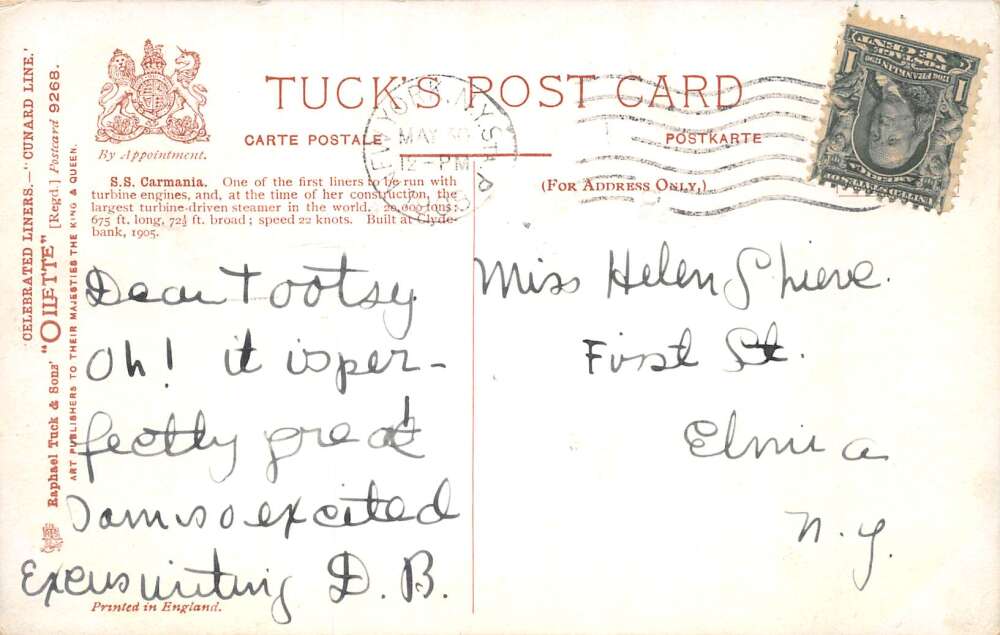 'CELEBRATED LINERS.—'CUNARD LINE.'
Raphael Tuck & Sons' "OILETTE" [Regd.] Postcard 9268.
ART PUBLISHERS TO THEIR MAJESTIES THE KING & QUEEN.
By Appointment.
TUCK'S POST CARD
CARTE POSTALE
POSTKARTE
(FOR ADDRESS ONLY.)
S.S. Carmania. One of the first liners to be run with
turbine engines, and, at the time of her construction, the
largest turbine-driven steamer in the world. 20,000 tons:
675 ft. long, 72½ ft. broad; speed 22 knots. Built at Clyde-
bank, 1905.
NEW YORK, N.Y. STA.
MAY 30
12-PM
POSTAGE
ONE CENT
1 1
1706 FRANKLIN 1790
Dear Tootsy
Oh! it is per-
fectly great
I am so excited
Excus writing D. B.
Miss Helen Shieve.
First St.
Elmira
N. Y.
Printed in England.